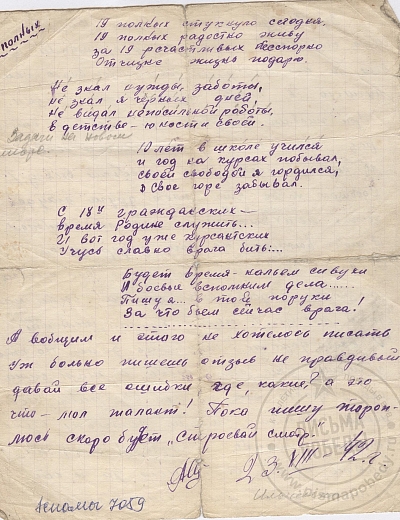 полных
19 полных стукнуло сегодня.
19 полных радостно живу
За 19 счастливых бесспорно
Отчизне жизнь подарю.
Не знал нужды, заботы,
Не знал я черных дней,
Не видал непосильной работы,
В детстве - юности своей.
10 лет в школе учился
и год на курсах побывал,
своей свободой я гордился,
а свое горе забывал.
С 18и гражданских -
время Родине служить...
И вот год уже курсантских
Учусь славно врага бить:...
Будет время - нальем сивухи
И боевые вспомним дела.....
Пишу а... в той поруки
За что бьем сейчас врага!
А вобщим и этого не хотелось писать
Уж больно пишешь отзыв не правдивый
давай все ошибки где, какие? а это
что - мол талант! Пока пишу тороп-
люсь скоро будет, строевой смотр.
23. VIII 42 г.
ПИСЬМА
ПОБЕДЫ
Нпомы 7059